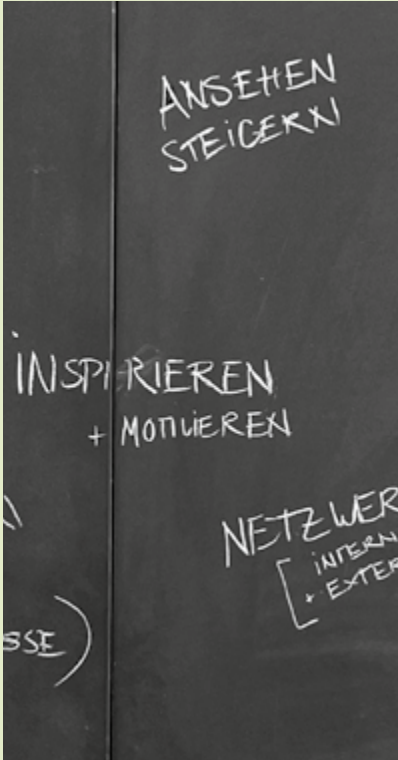 ANSEHEN
STEIGERN
INSPIRIEREN
+ MOTIVIEREN
NETZWER
INTERN
+ EXTER
SSE)